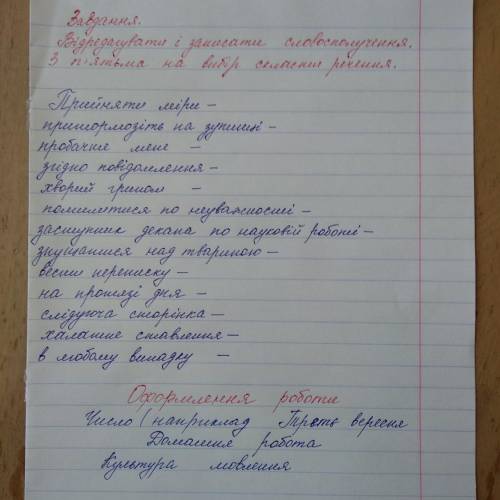 Завдання.
Відредагувати і записати словосполучення.
З п'ятьма на вибір скласти речення.
Прийняти міри –
притормозіть на зупинці –
пробачте мене –
згідно повідомлення –
хворий грипом –
помилитися по неуважності –
заступник декана по науковій роботі –
знущатися над твариною –
вести переписку –
на протязі дня –
слідуюча сторінка –
халатне ставлення –
в любому випадку –
Оформлення роботи
Число (наприклад Третє вересня
Домашня робота
Культура мовлення